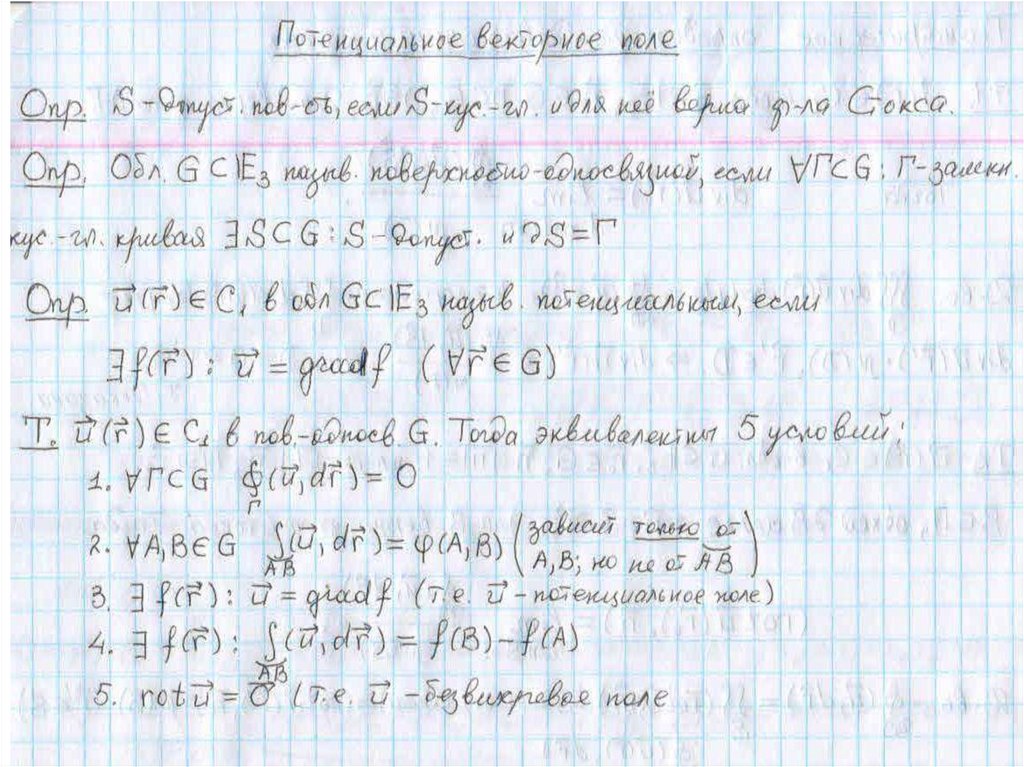 Потенциальное векторное поле
Опр. S-допуст. пов-сть, если S-кус.-гл. и для неё верна ф-ла Стокса.
Опр. Обл. G⊂E₃ назыв. поверхностно-односвязной, если ∀Γ⊂G: Γ-замкн.
кус.-гл. кривая ∃S⊂G: S-допуст. и ∂S=Γ
Опр. u⃗(r⃗)∈C₁ в обл G⊂E₃ назыв. потенциальным, если
∃f(r⃗): u⃗ = grad f (∀r⃗∈G)
Т. u⃗(r⃗)∈C₁ в пов-односв. G. Тогда эквивалентны 5 условий:
1. ∀Γ⊂G ∮_Γ(u⃗,dr⃗) = 0
2. ∀A,B∈G ∫_AB(u⃗,dr⃗) = φ(A,B) (зависит только от
A,B; но не от AB)
3. ∃ f(r⃗): u⃗ = grad f (т.е. u⃗ - потенциальное поле)
4. ∃ f(r⃗): ∫_AB(u⃗,dr⃗) = f(B) - f(A)
5. rot u⃗ = 0⃗ (т.е. u⃗ - безвихревое поле